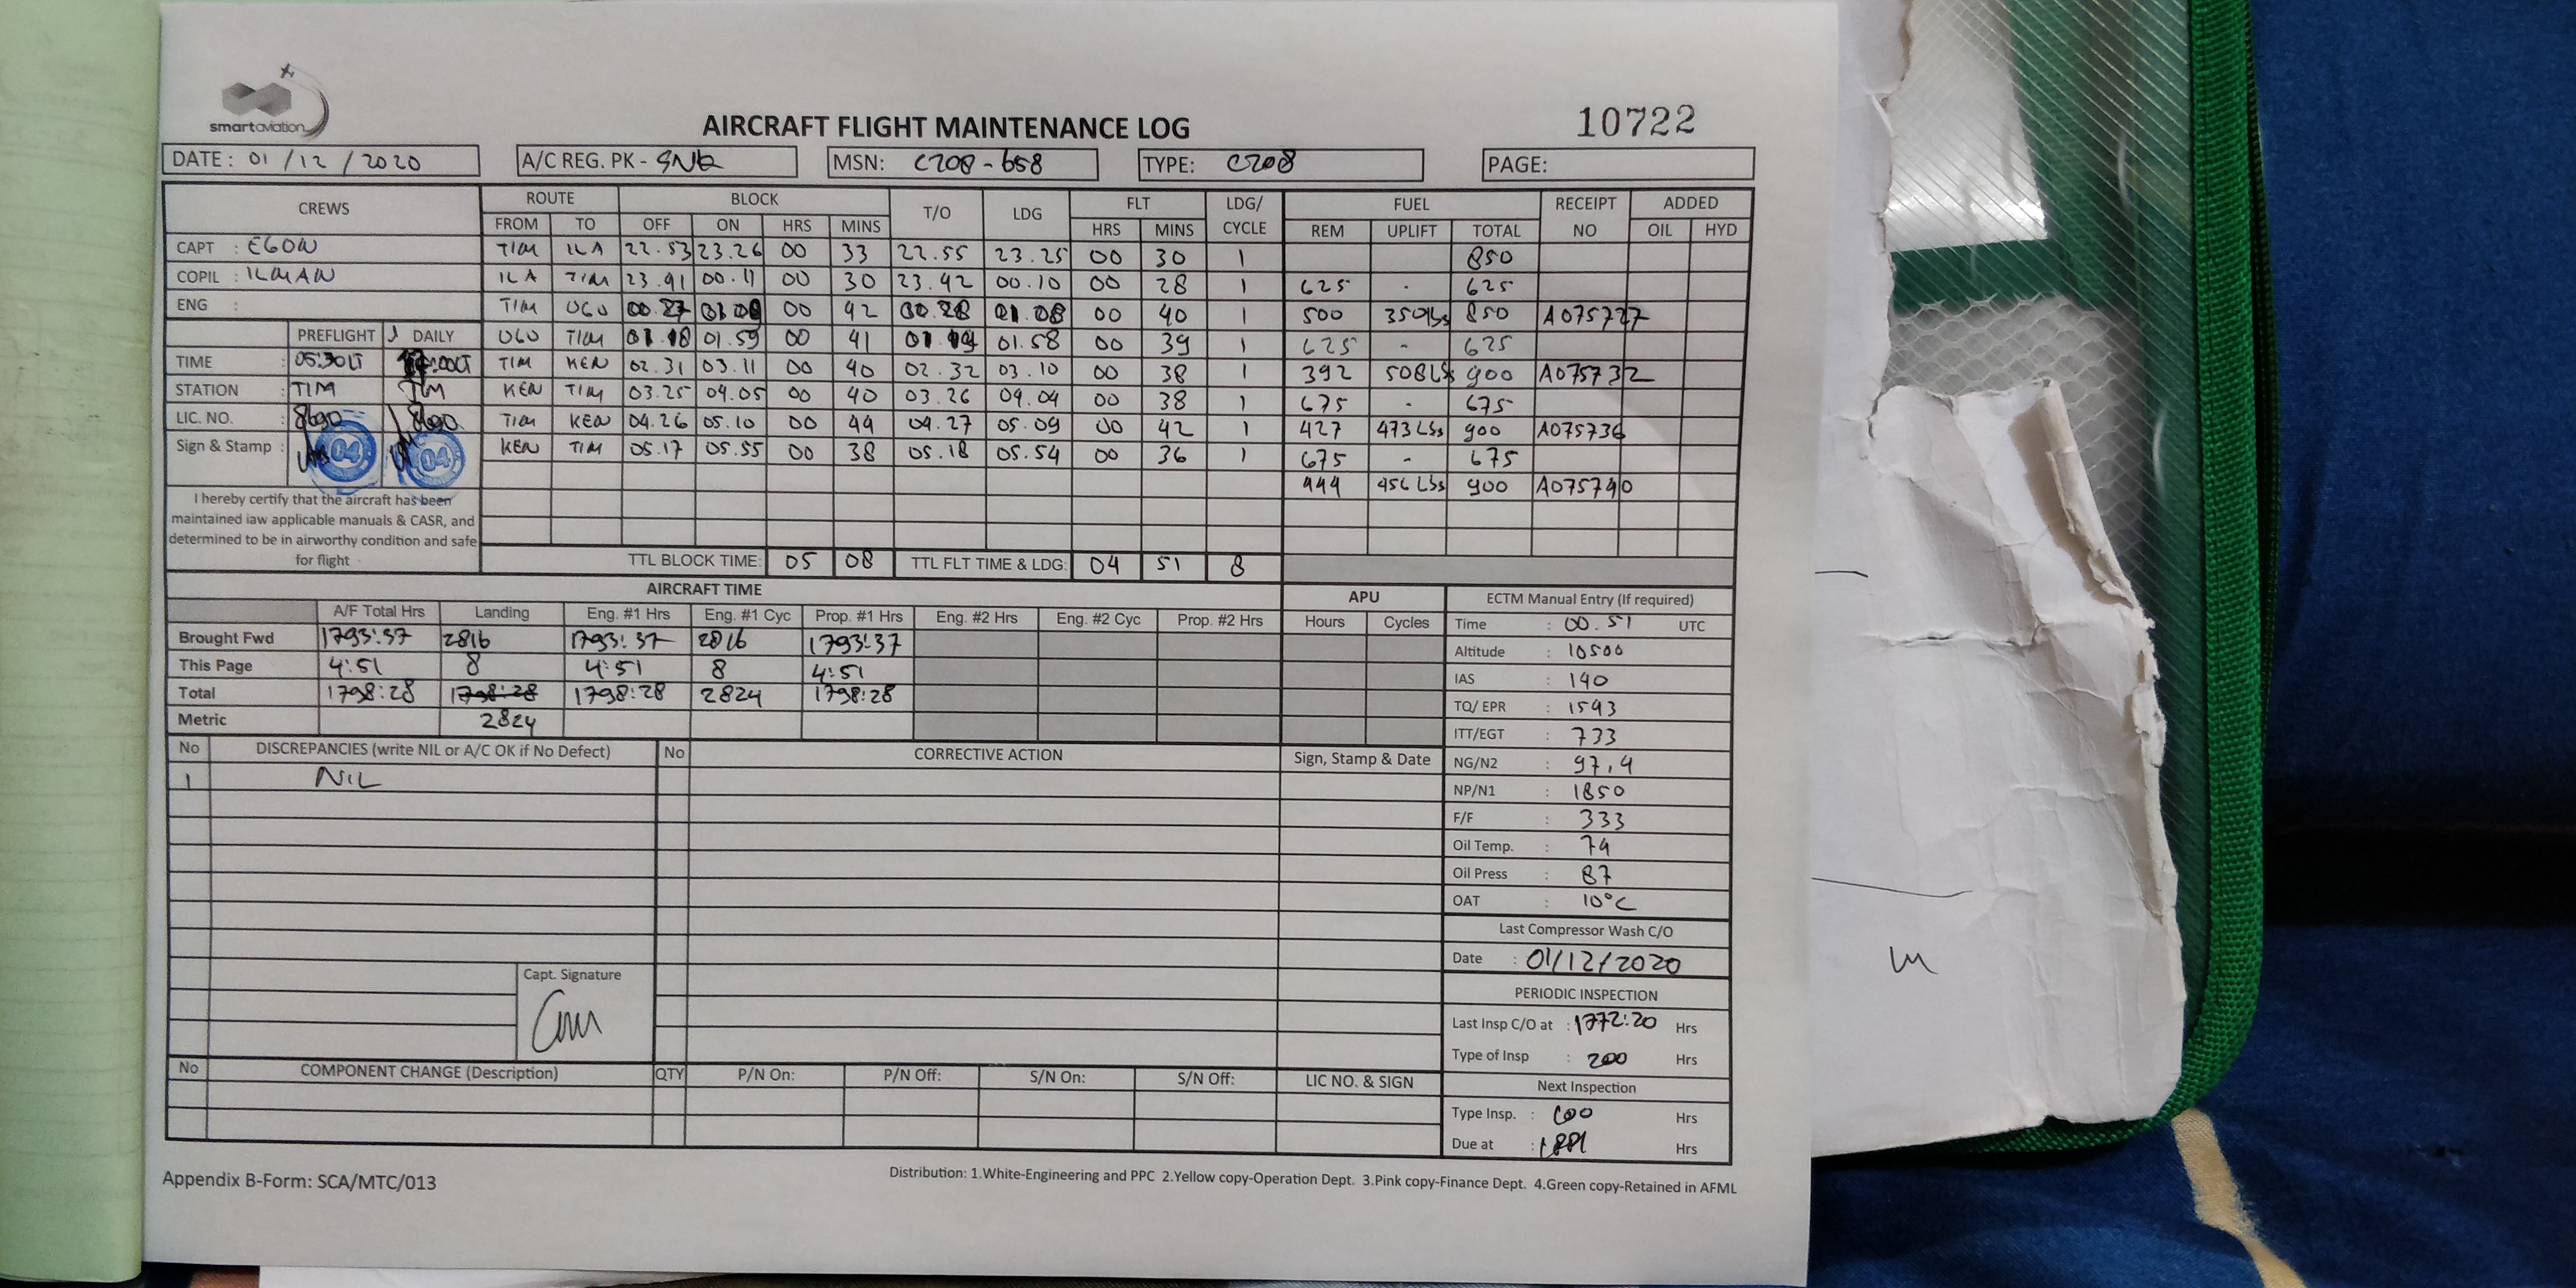 smartaviation
AIRCRAFT FLIGHT MAINTENANCE LOG
10722
DATE : 01 / 12 / 2020 A/C REG. PK - SNK MSN: C208 - 658 TYPE: C208 PAGE:
CREWS ROUTE BLOCK T/O LDG FLT LDG/ CYCLE FUEL RECEIPT NO ADDED
FROM TO OFF ON HRS MINS HRS MINS REM UPLIFT TOTAL OIL HYD
CAPT : EGON TIM ILA 22.53 23.26 00 33 22.55 23.25 00 30 1 850
COPIL : ILMAN ILA TIM 23.41 00.11 00 30 23.42 00.10 00 28 1 625 - 625
ENG : TIM UGU 00.27 01.09 00 42 00.28 01.08 00 40 1 500 350Lbs 850 A075727
PREFLIGHT DAILY UGU TIM 01.18 01.59 00 41 01.19 01.58 00 39 1 625 - 625
TIME : 05:30LT TIM KEN 02.31 03.11 00 40 02.32 03.10 00 38 1 392 508Lbs 900 A075732
STATION : TIM TIM KEN TIM 03.25 04.05 00 40 03.26 04.04 00 38 1 675 - 675
LIC. NO. : TIM KEN 04.26 05.10 00 44 04.27 05.09 00 42 1 427 473Lbs 900 A075736
Sign & Stamp : 04 04 KEN TIM 05.17 05.55 00 38 05.18 05.54 00 36 1 675 - 675
444 456Lbs 900 A075740
I hereby certify that the aircraft has been
maintained iaw applicable manuals & CASR, and
determined to be in airworthy condition and safe
for flight
TTL BLOCK TIME: 05 08 TTL FLT TIME & LDG: 04 51 8
AIRCRAFT TIME APU
A/F Total Hrs Landing Eng. #1 Hrs Eng. #1 Cyc Prop. #1 Hrs Eng. #2 Hrs Eng. #2 Cyc Prop. #2 Hrs Hours Cycles
Brought Fwd 1793:37 2816 1793:37 2816 1793:37
This Page 4:51 8 4:51 8 4:51
Total 1798:28 1798:28 1798:28 2824 1798:28
Metric 2824
ECTM Manual Entry (If required)
Time : 00.51 UTC
Altitude : 10500
IAS : 140
TQ/ EPR : 1543
ITT/EGT : 733
NG/N2 : 97,4
NP/N1 : 1850
F/F : 333
Oil Temp. : 74
Oil Press : 87
OAT : 10°C
Last Compressor Wash C/O
Date : 01/12/2020
PERIODIC INSPECTION
Last Insp C/O at : 1772:20 Hrs
Type of Insp : 200 Hrs
Next Inspection
Type Insp. : Hrs
Due at : Hrs
No DISCREPANCIES (write NIL or A/C OK if No Defect) No CORRECTIVE ACTION Sign, Stamp & Date
1 NIL
Capt. Signature
No COMPONENT CHANGE (Description) QTY P/N On: P/N Off: S/N On: S/N Off: LIC NO. & SIGN
Appendix B-Form: SCA/MTC/013
Distribution: 1.White-Engineering and PPC 2.Yellow copy-Operation Dept. 3.Pink copy-Finance Dept. 4.Green copy-Retained in AFML